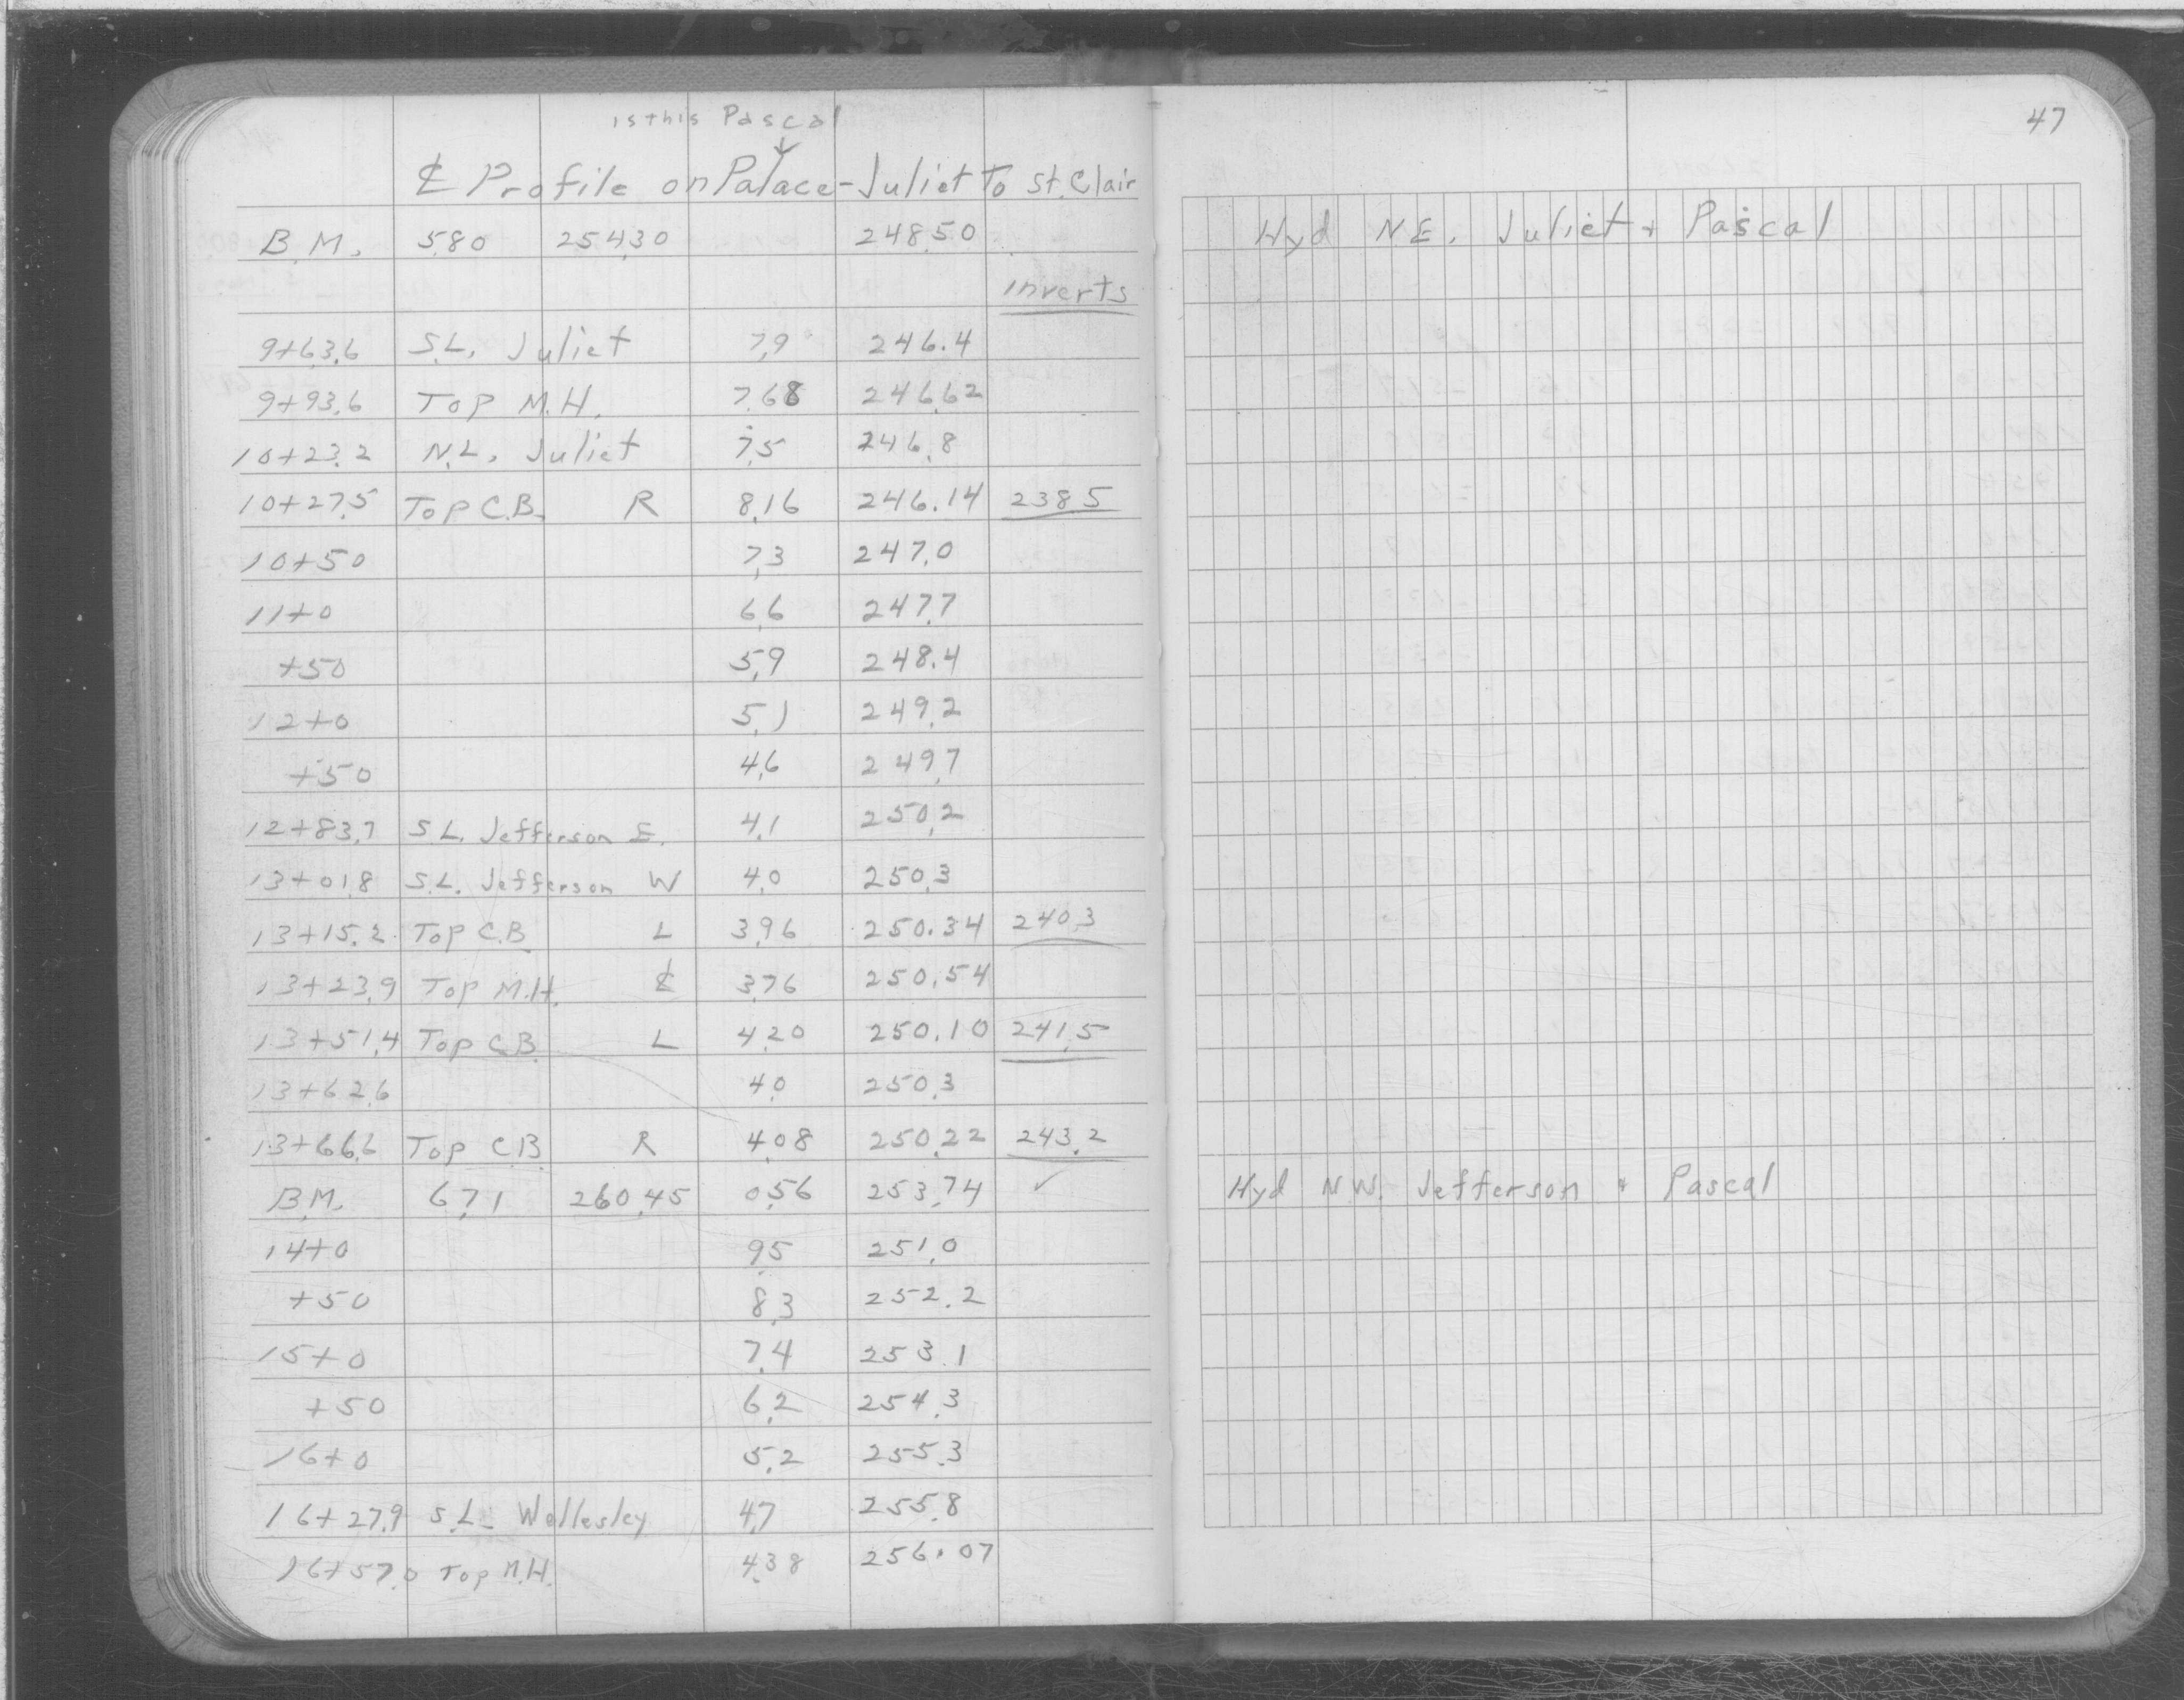 47
is this Pascal
℄ Profile on Palace - Juliet To St. Clair
B.M. 5.80 254.30 248.50 Hyd N.E. Juliet + Pascal
inverts
9+63.6 S.L. Juliet 7.9 246.4
9+93.6 Top M.H. 7.68 246.62
10+23.2 N.L. Juliet 7.5 246.8
10+27.5 Top C.B. R 8.16 246.14 238.5
10+50 7.3 247.0
11+0 6.6 247.7
+50 5.9 248.4
12+0 5.1 249.2
+50 4.6 249.7
12+83.7 S.L. Jefferson E. 4.1 250.2
13+01.8 S.L. Jefferson W 4.0 250.3
13+15.2 Top C.B. L 3.96 250.34 240.3
13+23.9 Top M.H. ℄ 3.76 250.54
13+51.4 Top C.B. L 4.20 250.10 241.5
13+62.6 4.0 250.3
13+66.6 Top C.B. R 4.08 250.22 243.2
B.M. 6.71 260.45 0.56 253.74 ✓ Hyd N.W. Jefferson + Pascal
14+0 9.5 251.0
+50 8.3 252.2
15+0 7.4 253.1
+50 6.2 254.3
16+0 5.2 255.3
16+27.9 S.L. Wellesley 4.7 255.8
16+57.0 Top M.H. 4.38 256.07